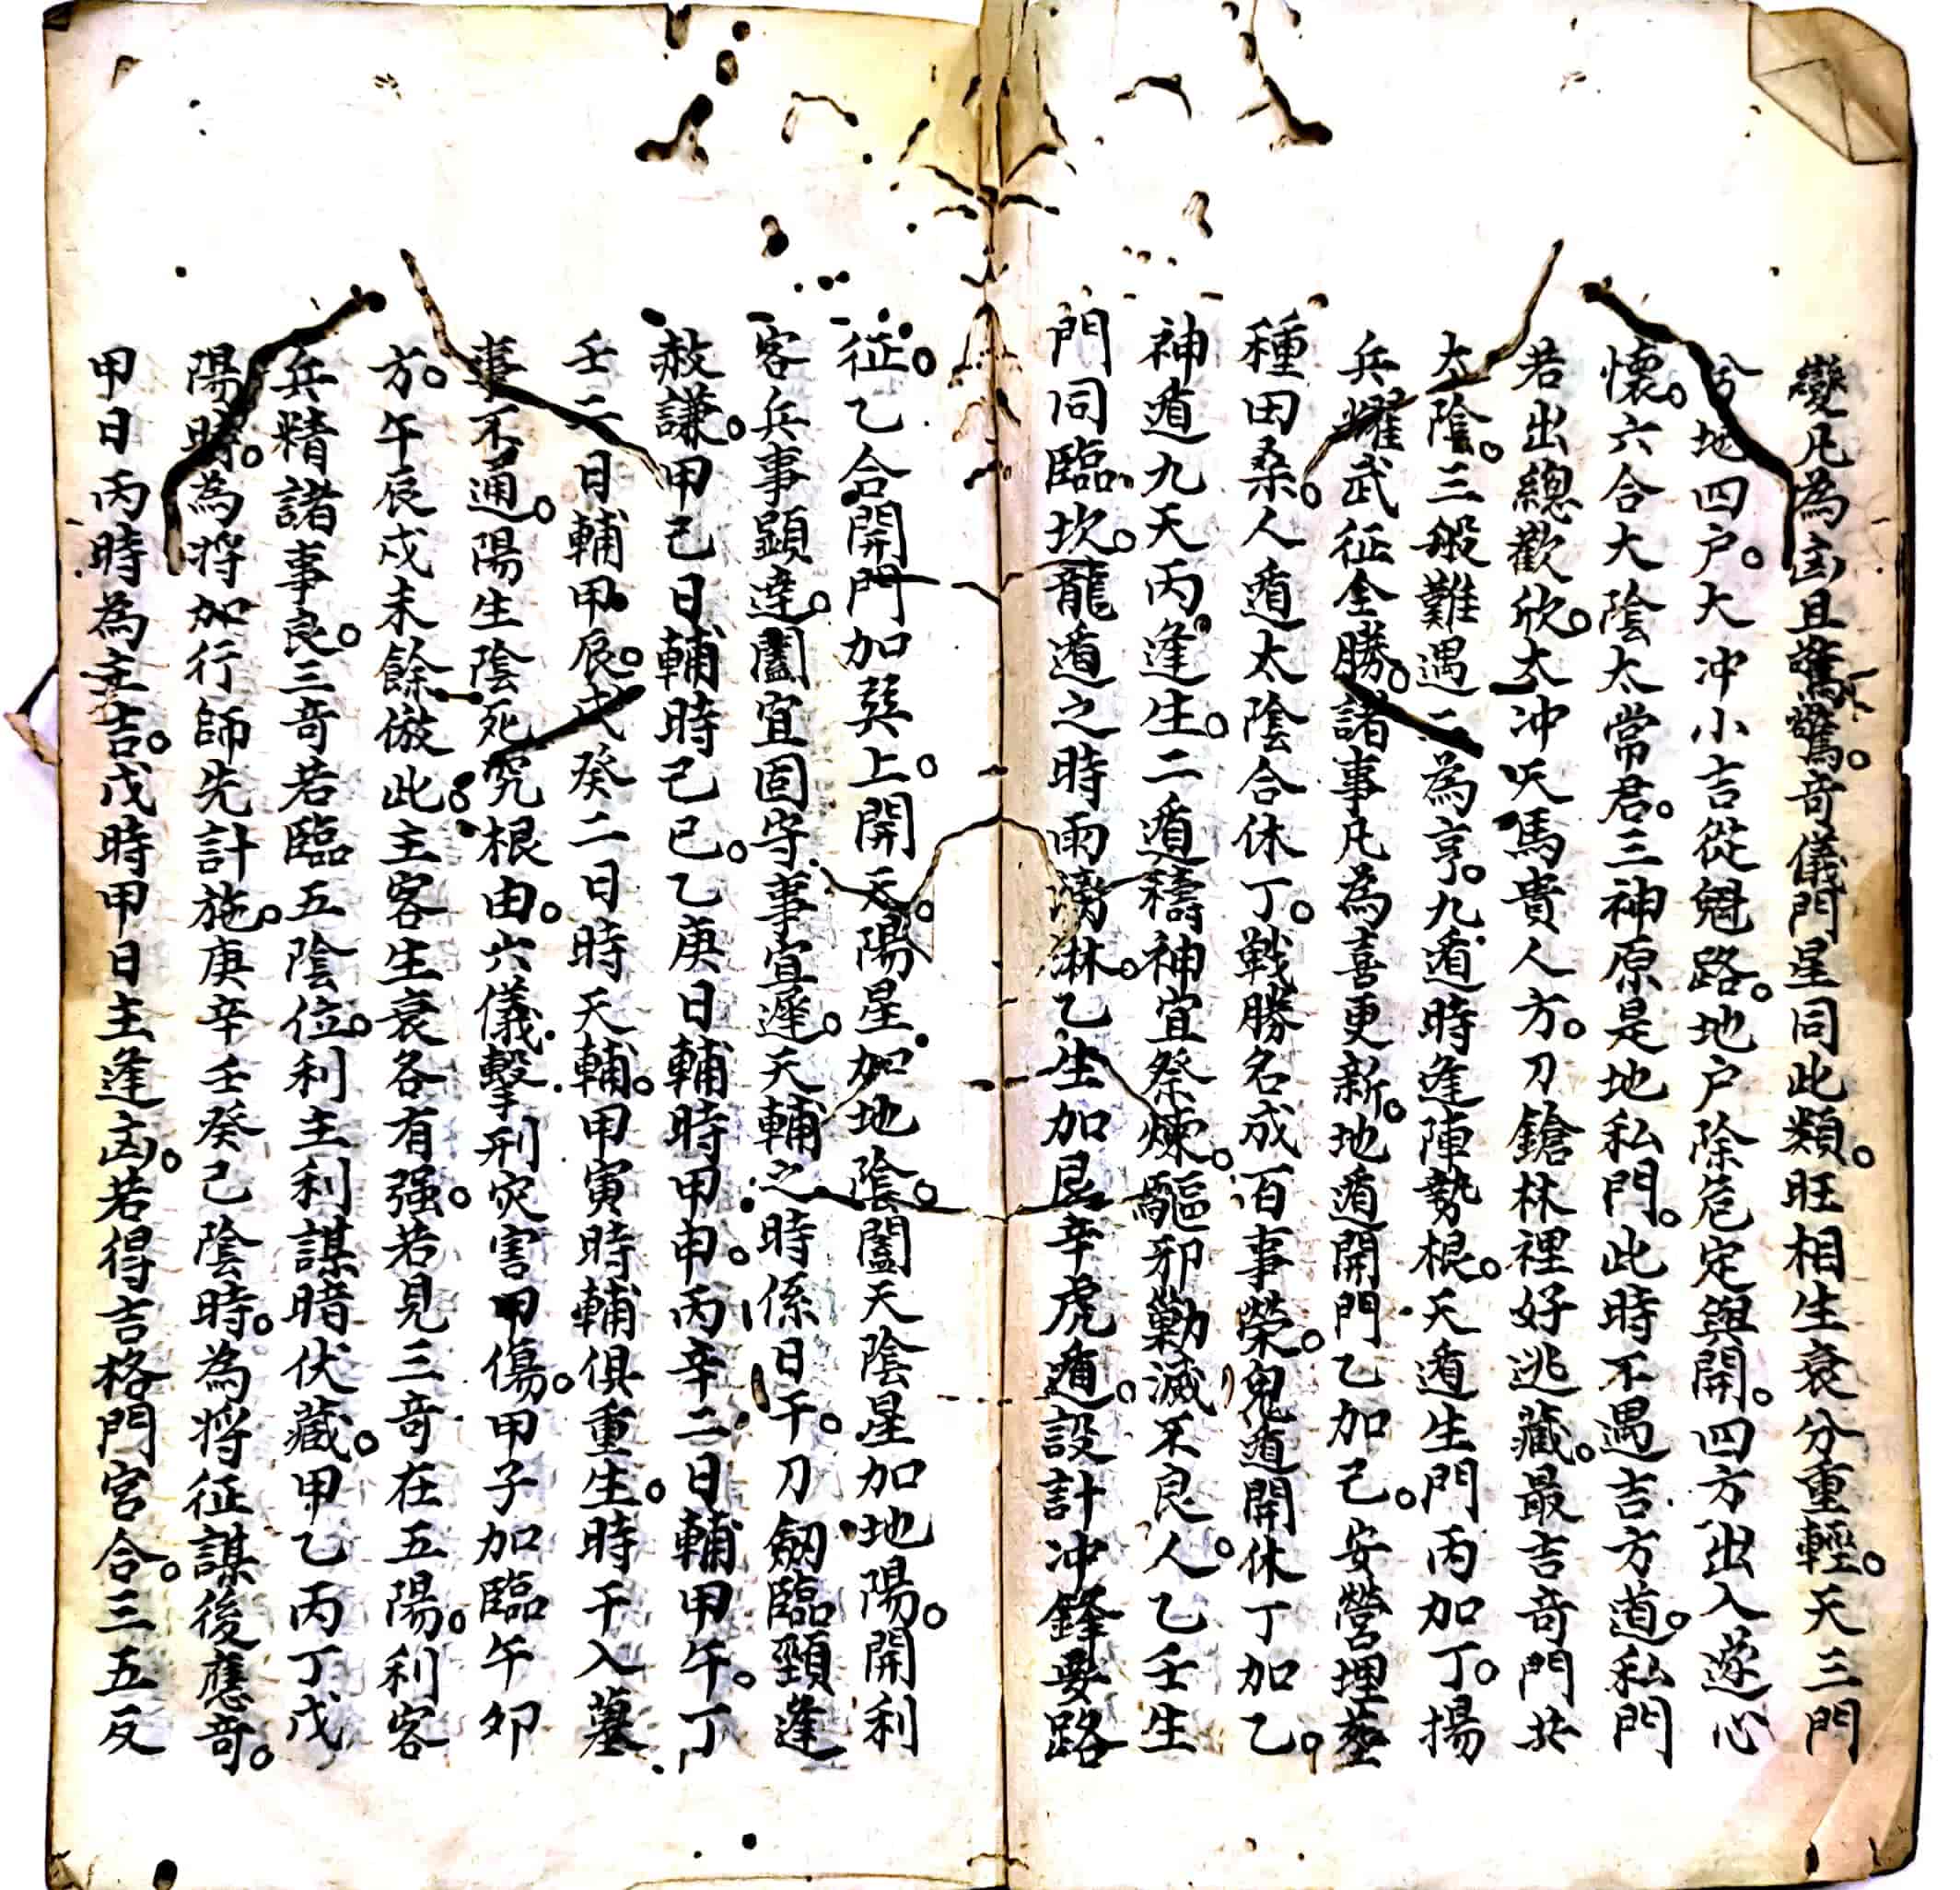 變凡為凶且驚驚。奇儀門星同此類。旺相生衰分重輕。天三門
兮地四户。大冲小吉從魁路。地户除危定與開。四方出入遂心
懷。六合大陰太常君。三神原是地私門。此時不遇吉方道。私門
若出總歡欣。太冲天馬貴人方。刀鎗林裡好逃藏。最吉奇門共
太陰。三般難遇二為亨。九遁時逢陣勢根。天遁生門丙加丁。揚
兵耀武征全勝。諸事凡為喜更新。地遁開門乙加己。安營埋塟
種田桑。人遁太陰合休丁。戰勝名成百事榮。鬼遁開休丁加乙。
神遁九天丙逢生。二遁禱神宜祭煉。驅邪勦滅不良人。乙壬生
門同臨坎。龍遁之時雨淋。乙生加艮辛虎遁。設計冲鋒要路
征。乙合開門加巽上。開天陽星加地陰。闔天陰星加地陽。開利
客兵事顕達。闔宜固守事宜遲。天輔之時係日干。刀劒臨頸逢
赦謙。甲己日輔時己巳。乙庚日輔時甲申。丙辛二日輔甲午。丁
壬二日輔甲辰。戊癸二日時天輔。甲寅時輔俱重生。時干入墓
事不通。陽生陰死究根由。六儀擊刑灾害甲傷。甲子加臨午卯
方。午辰戌未餘倣此。主客生衰各有强。若見三奇在五陽。利客
兵精諸事良。三奇若臨五陰位。利主利謀暗伏藏。甲乙丙丁戊
陽時。為将加行師先計施。庚辛壬癸己陰時。為将征謀後應奇。
甲日丙時為主吉。戊時甲日主逢凶。若得吉格門宮合。三五反